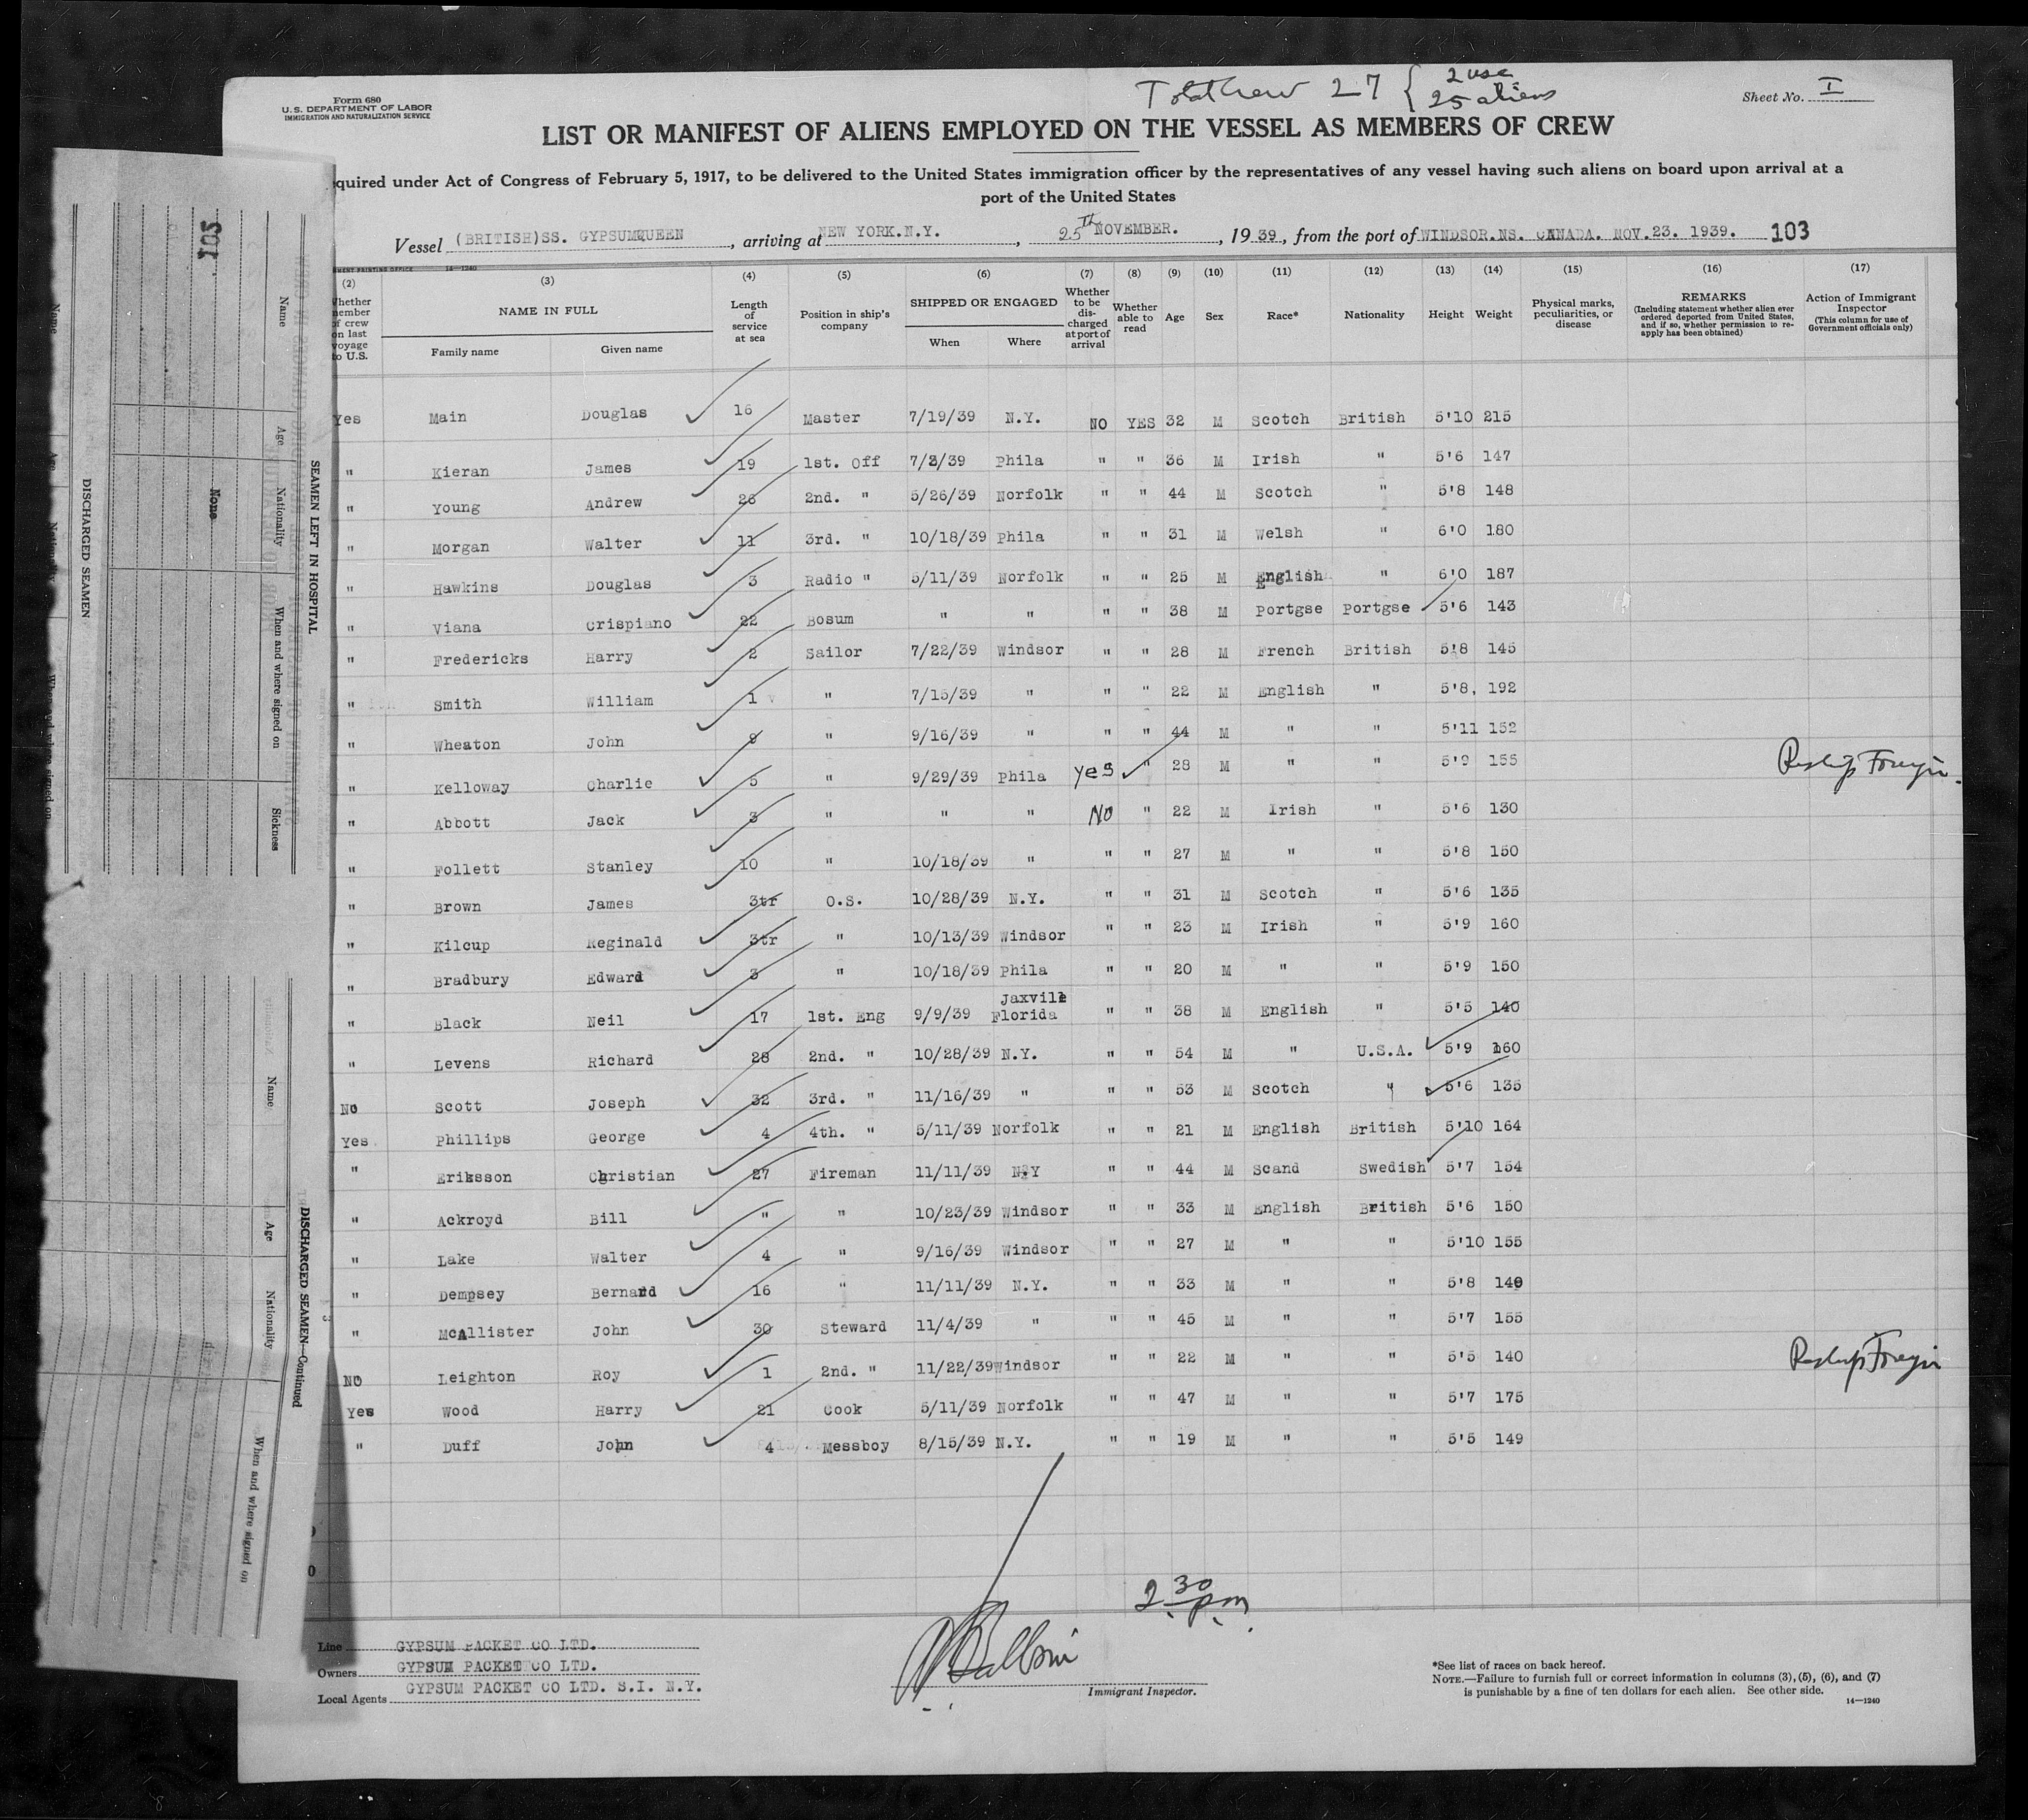 Form 680
U.S. DEPARTMENT OF LABOR
IMMIGRATION AND NATURALIZATION SERVICE
Total Crew 27 { 2 usc
25 aliens
Sheet No. I
LIST OR MANIFEST OF ALIENS EMPLOYED ON THE VESSEL AS MEMBERS OF CREW
quired under Act of Congress of February 5, 1917, to be delivered to the United States immigration officer by the representatives of any vessel having such aliens on board upon arrival at a
port of the United States
Vessel (BRITISH)SS. GYPSUMQUEEN, arriving at NEW YORK.N.Y., 25th NOVEMBER., 1939, from the port of WINDSOR.NS. CANADA. NOV.23. 1939. 103
(2) (3) (4) (5) (6) (7) (8) (9) (10) (11) (12) (13) (14) (15) (16) (17)
Whether member of crew on last voyage to U.S.
NAME IN FULL
Family name Given name
Length of service at sea
Position in ship's company
SHIPPED OR ENGAGED
When Where
Whether to be discharged at port of arrival
Whether able to read
Age Sex Race* Nationality Height Weight
Physical marks, peculiarities, or disease
REMARKS
(Including statement whether alien ever ordered deported from United States, and if so, whether permission to reapply has been obtained)
Action of Immigrant Inspector
(This column for use of Government officials only)
Yes Main Douglas 16 Master 7/19/39 N.Y. NO YES 32 M Scotch British 5'10 215
" Kieran James 19 1st. Off 7/3/39 Phila " " 36 M Irish " 5'6 147
" Young Andrew 26 2nd. " 5/26/39 Norfolk " " 44 M Scotch " 5'8 148
" Morgan Walter 11 3rd. " 10/18/39 Phila " " 31 M Welsh " 6'0 180
" Hawkins Douglas 3 Radio " 5/11/39 Norfolk " " 25 M English " 6'0 187
" Viana Crispiano 22 Bosum " " " " 38 M Portgse Portgse 5'6 143
" Fredericks Harry 2 Sailor 7/22/39 Windsor " " 28 M French British 5'8 145
" Smith William 1 " 7/15/39 " " " 22 M English " 5'8, 192
" Wheaton John 9 " 9/16/39 " " " 44 M " " 5'11 152
" Kelloway Charlie 5 " 9/29/39 Phila yes " 28 M " " 5'9 155 Reship Foreign.
" Abbott Jack 3 " " " No " 22 M Irish " 5'6 130
" Follett Stanley 10 " 10/18/39 " " " 27 M " " 5'8 150
" Brown James 3tr O.S. 10/28/39 N.Y. " " 31 M Scotch " 5'6 135
" Kilcup Reginald 3tr " 10/13/39 Windsor " " 23 M Irish " 5'9 160
" Bradbury Edward 3 " 10/18/39 Phila " " 20 M " " 5'9 150
" Black Neil 17 1st. Eng 9/9/39 Jaxville Florida " " 38 M English " 5'5 140
" Levens Richard 28 2nd. " 10/28/39 N.Y. " " 54 M " U.S.A. 5'9 160
No Scott Joseph 32 3rd. " 11/16/39 " " " 53 M Scotch " 5'6 135
Yes Phillips George 4 4th. " 5/11/39 Norfolk " " 21 M English British 5'10 164
" Eriksson Christian 27 Fireman 11/11/39 N.Y " " 44 M Scand Swedish 5'7 154
" Ackroyd Bill " " 10/23/39 Windsor " " 33 M English British 5'6 150
" Lake Walter 4 " 9/16/39 Windsor " " 27 M " " 5'10 155
" Dempsey Bernard 16 " 11/11/39 N.Y. " " 33 M " " 5'8 140
" McAllister John 30 Steward 11/4/39 " " " 45 M " " 5'7 155
NO Leighton Roy 1 2nd. " 11/22/39 Windsor " " 22 M " " 5'5 140 Reship Foreign
Yes Wood Harry 21 Cook 5/11/39 Norfolk " " 47 M " " 5'7 175
" Duff John 4 Messboy 8/15/39 N.Y. " " 19 M " " 5'5 149
2 30 p.m.
Line GYPSUM PACKET CO LTD.
Owners GYPSUM PACKET CO LTD.
Local Agents GYPSUM PACKET CO LTD. S.I. N.Y.
Immigrant Inspector.
*See list of races on back hereof.
NOTE.—Failure to furnish full or correct information in columns (3), (5), (6), and (7)
is punishable by a fine of ten dollars for each alien. See other side.
14—1240
105
SEAMEN LEFT IN HOSPITAL
Name Age Nationality When and where signed on Sickness
None
DISCHARGED SEAMEN
DISCHARGED SEAMEN—Continued
Name Age Nationality When and where signed on